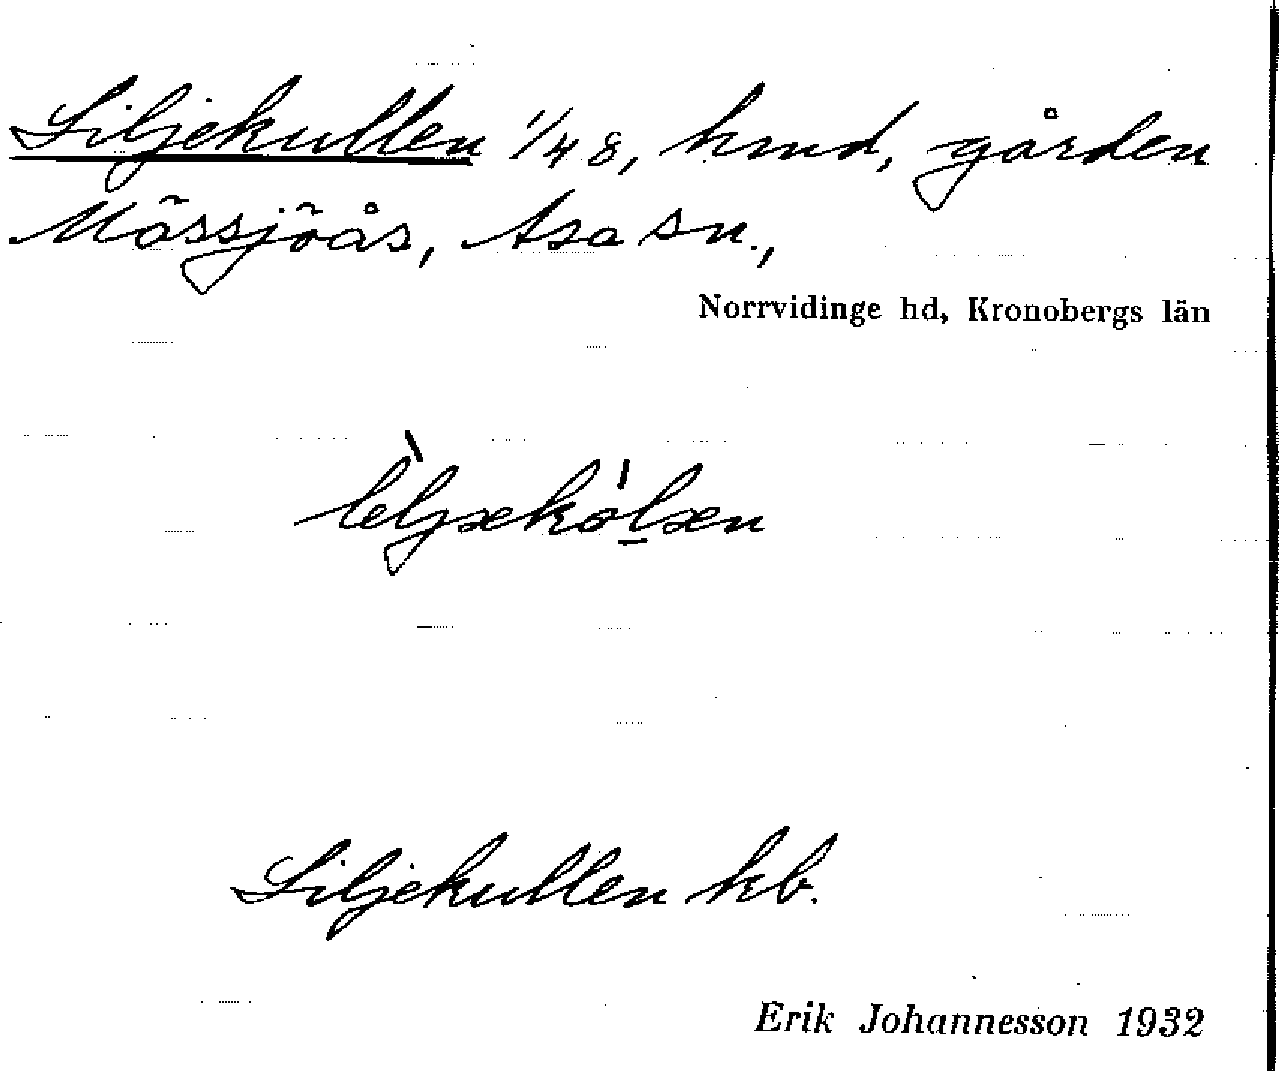 Liljekullen 1/48, hmd, gården
Mössjöås, Asa sn.,
Norrvidinge hd, Kronobergs län
Liljekullen kb.
Erik Johannesson 1932